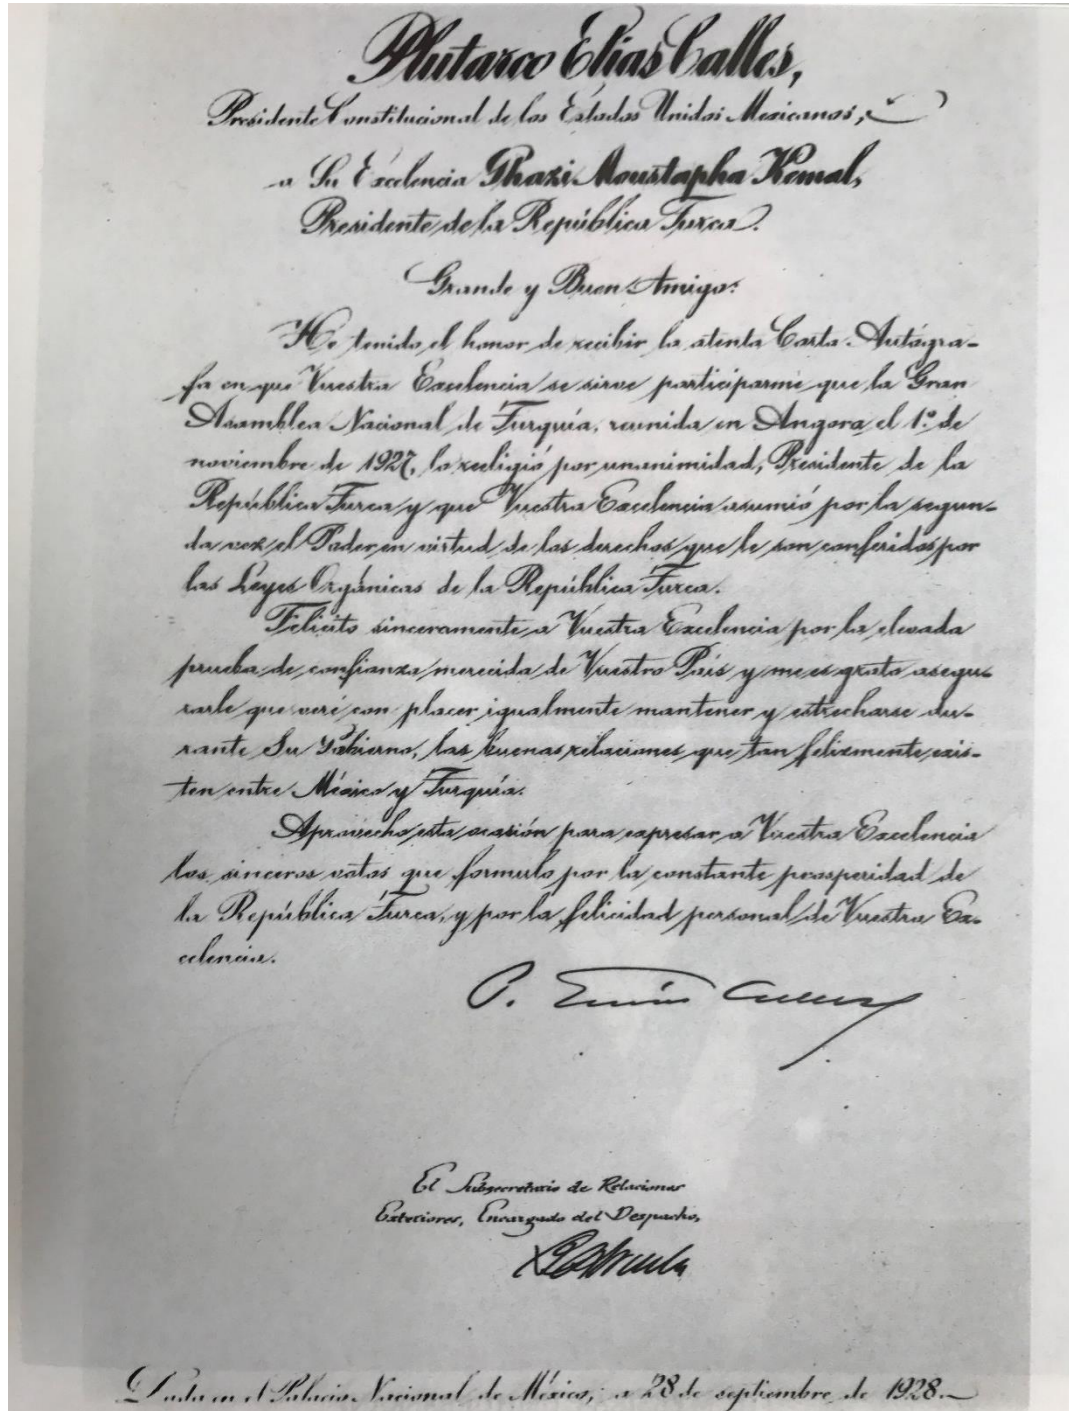 Plutarco Elías Calles,
Presidente Constitucional de los Estados Unidos Mexicanos,
a Su Excelencia Ghazi Moustapha Kemal,
Presidente de la República Turca.
Grande y Buen Amigo:
He tenido el honor de recibir la atenta Carta Autógra-
fa en que Vuestra Excelencia se sirve participarme que la Gran
Asamblea Nacional de Turquía, reunida en Angora el 1º de
noviembre de 1927, lo reeligió por unanimidad, Presidente de la
República Turca y que Vuestra Excelencia asumió por la segun-
da vez el Poder en virtud de los derechos que le son conferidos por
las Leyes Orgánicas de la República Turca.
Felicito sinceramente a Vuestra Excelencia por la elevada
prueba de confianza merecida de Vuestro País y me es grato asegu-
rarle que veré con placer igualmente mantener y estrecharse du-
rante Su Gobierno, las buenas relaciones que tan felizmente exis-
ten entre México y Turquía.
Aprovecho esta ocasión para expresar a Vuestra Excelencia
los sinceros votos que formulo por la constante prosperidad de
la República Turca, y por la felicidad personal de Vuestra Ex-
celencia.
P. Elías Calles
El Subsecretario de Relaciones
Exteriores, Encargado del Despacho,
Dada en el Palacio Nacional de México, a 28 de septiembre de 1928.